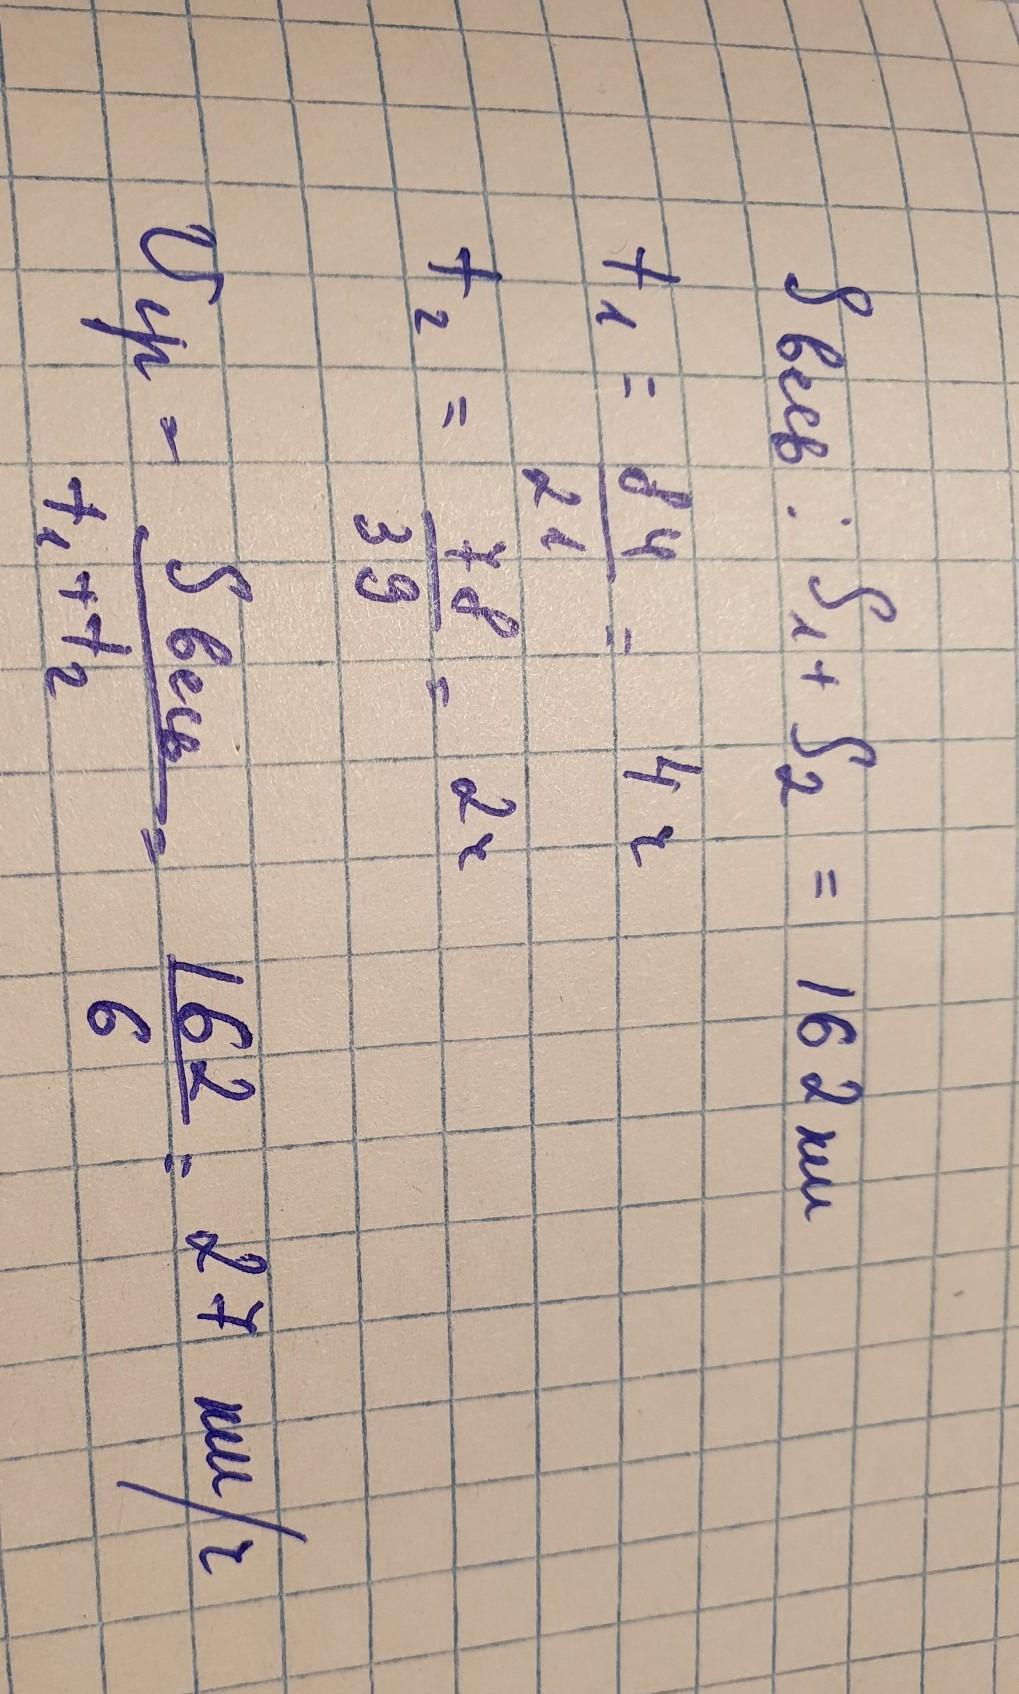 S весь : S₁ + S₂ = 162 км
t₁ = 84/21 = 4 ч
t₂ = 78/39 = 2 ч
υср = S весь/t₁ + t₂ = 162/6 = 27 км/ч